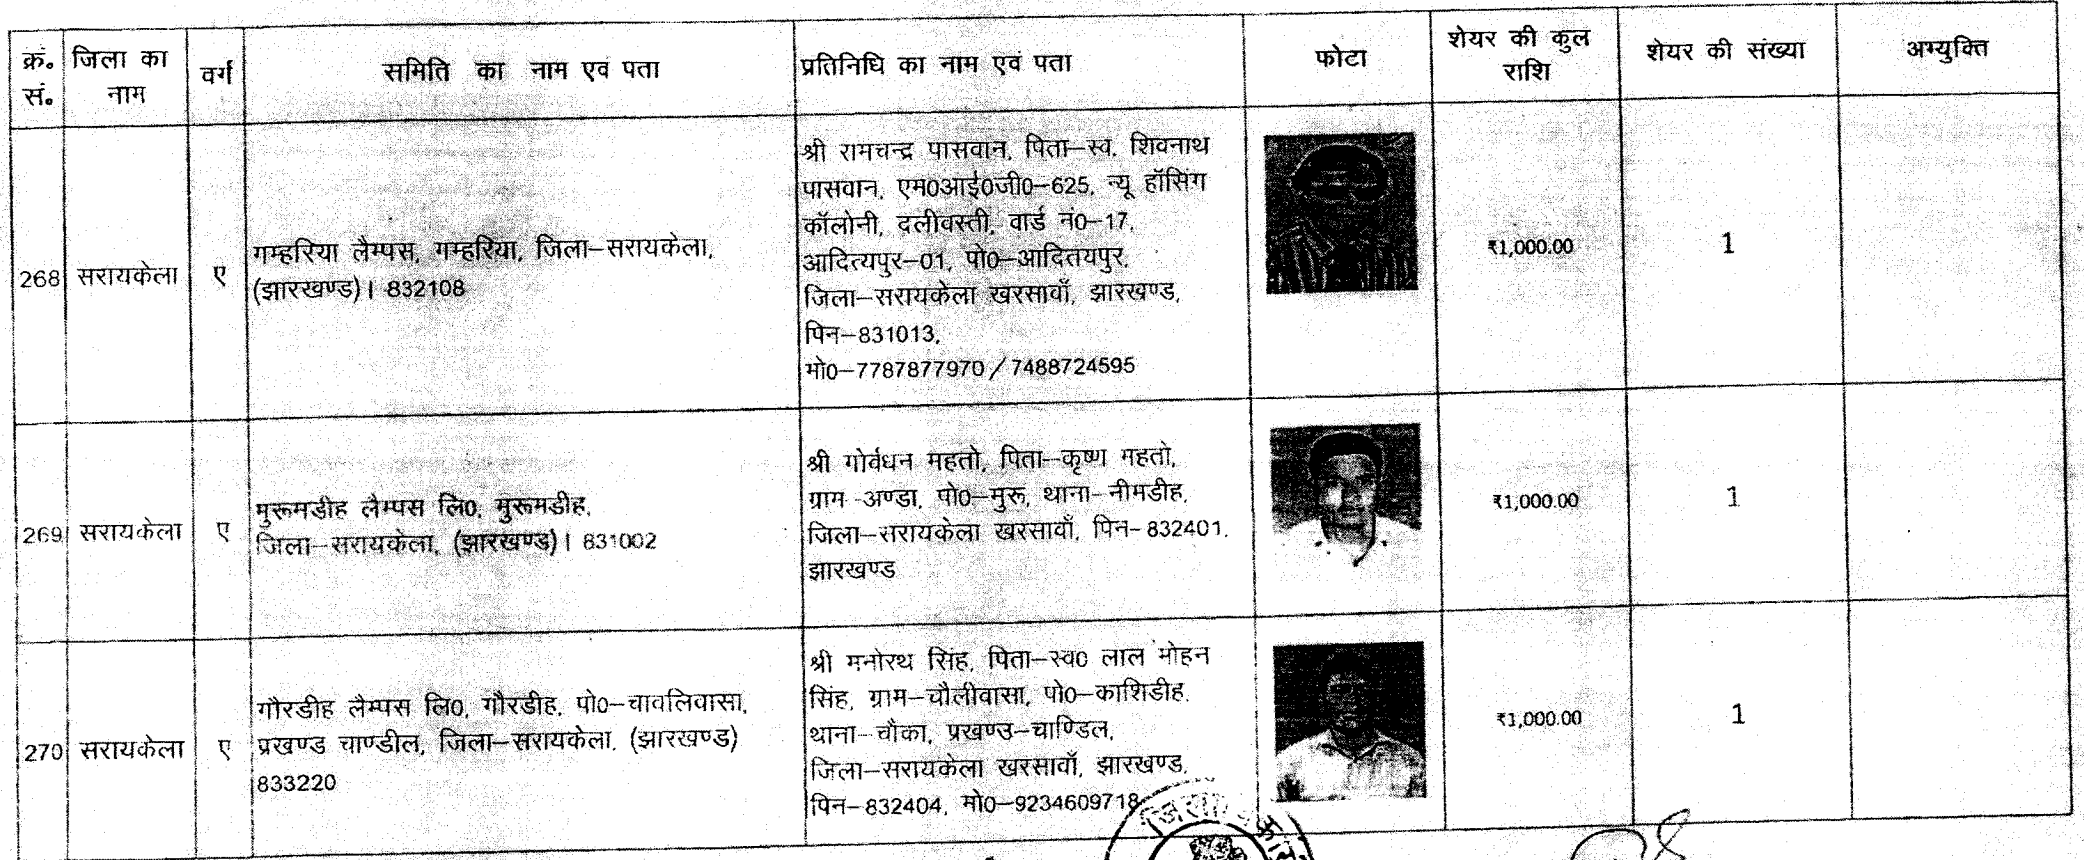 क्रं॰ सं॰
जिला का नाम
वर्ग
समिति का नाम एवं पता
प्रतिनिधि का नाम एवं पता
फोटा
शेयर की कुल राशि
शेयर की संख्या
अभ्युक्ति
268
सरायकेला
ए
गम्हरिया लैम्पस, गम्हरिया, जिला–सरायकेला,
(झारखण्ड)। 832108
श्री रामचन्द्र पासवान, पिता–स्व. शिवनाथ
पासवान, एम0आई0जी0–625, न्यू हॉसिंग
कॉलोनी, दलीवस्ती, वार्ड नं0–17,
आदित्यपुर–01, पो0–आदितयपुर,
जिला–सरायकेला खरसावाँ, झारखण्ड,
पिन–831013,
मो0–7787877970/7488724595
₹1,000.00
1
269
सरायकेला
ए
मुरूमडीह लैम्पस लि0, मुरूमडीह,
जिला–सरायकेला, (झारखण्ड)। 831002
श्री गोर्वधन महतो, पिता–कृष्ण महतो,
ग्राम–अण्डा, पो0–मुरू, थाना–नीमडीह,
जिला–सरायकेला खरसावाँ, पिन–832401,
झारखण्ड
₹1,000.00
1
270
सरायकेला
ए
गौरडीह लैम्पस लि0, गौरडीह, पो0–चावलिवासा,
प्रखण्ड चाण्डील, जिला–सरायकेला, (झारखण्ड)
833220
श्री मनोरथ सिंह, पिता–स्व0 लाल मोहन
सिंह, ग्राम–चौलीवासा, पो0–काशिडीह,
थाना–चौका, प्रखण्ड–चाण्डिल,
जिला–सरायकेला खरसावाँ, झारखण्ड,
पिन–832404, मो0–9234609718
₹1,000.00
1